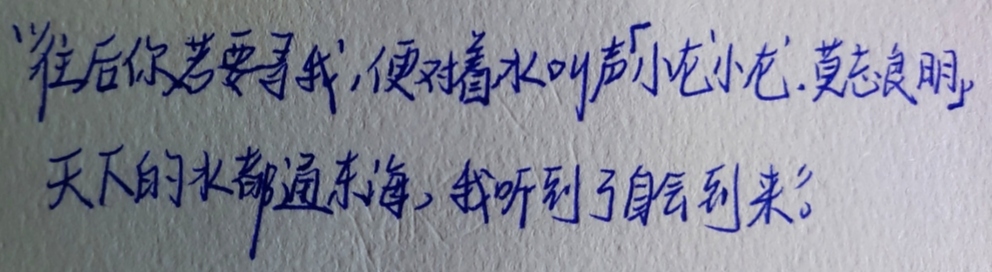 “往后你若要寻我,便对着水叫声「小龙小龙,莫忘良朋」
天下的水都通东海,我听到了自会到来。”